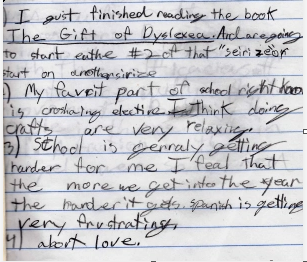 1) I gust finished reading the book
The Gift of Dyslexea. And are going
to start eathe #2 of that "seiri zeor
start on anothersirize
) My favrit part of school right now
is croshaing elective I think doing
crafts are very relaxing.
3) School is gerraly getting
harder for me I feel that
the more we get into the year
the harder it gets. spanish is getting
very frustrating.
4) abort love.